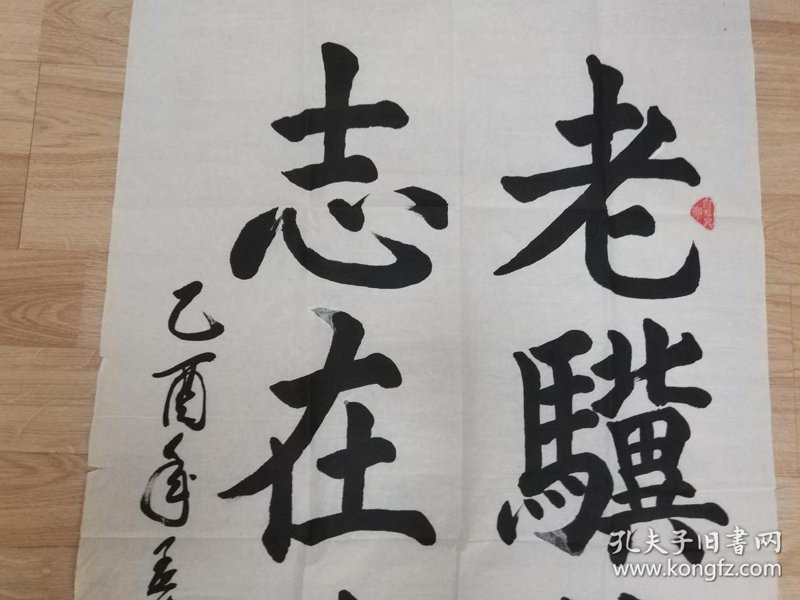 老驥
志在
乙酉年
孔夫子旧書网
www.kongfz.com